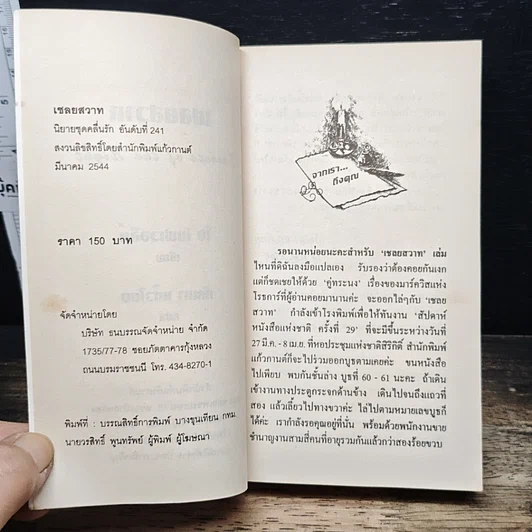 เชลยสวาท
นิยายชุดคลื่นรัก อันดับที่ 241
สงวนลิขสิทธิ์โดยสำนักพิมพ์แก้วกานต์
มีนาคม 2544
ราคา 150 บาท
จัดจำหน่ายโดย
บริษัท ธนบรรณจัดจำหน่าย จำกัด
1735/77-78 ซอยภัตตาคารกุ้งหลวง
ถนนบรมราชชนนี โทร. 434-8270-1
พิมพ์ที่ : บรรณสิทธิ์การพิมพ์ บางขุนเทียน กทม.
นายวรสิทธิ์ พูนทรัพย์ ผู้พิมพ์ ผู้โฆษณา
จากเรา...
ถึงคุณ
รอนานหน่อยนะคะสำหรับ 'เชลยสวาท' เล่ม
ไหนที่ดิฉันลงมือแปลเอง รับรองว่าต้องคอยกันเงก
แต่ก็ชดเชยให้ด้วย 'คู่ทระนง' เรื่องของมาร์ควิสแห่ง
โรธการ์ที่ผู้อ่านคอยมานานค่ะ จะออกไล่ๆกับ 'เชลย
สวาท' กำลังเข้าโรงพิมพ์เพื่อให้ทันงาน 'สัปดาห์
หนังสือแห่งชาติ ครั้งที่ 29' ที่จะมีขึ้นระหว่างวันที่
27 มี.ค. - 8 เม.ย. ที่หอประชุมแห่งชาติสิริกิติ์ สำนักพิมพ์
แก้วกานต์ก็จะไปร่วมออกบูธตามเคยค่ะ ขนหนังสือ
ไปเพียบ พบกันชั้นล่าง บูธที่ 60 - 61 นะคะ ถ้าเดิน
เข้างานทางประตูกระจกด้านข้าง เดินไปจนถึงแถวที่
สอง แล้วเลี้ยวไปทางขวาค่ะ ไล่ไปตามหมายเลขบูธก็
ได้ค่ะ เรากำลังรอคุณอยู่ที่นั่น พร้อมด้วยพนักงานขาย
ชำนาญงานสามสี่คนที่อายุรวมกันแล้วกว่าสองร้อยขวบ